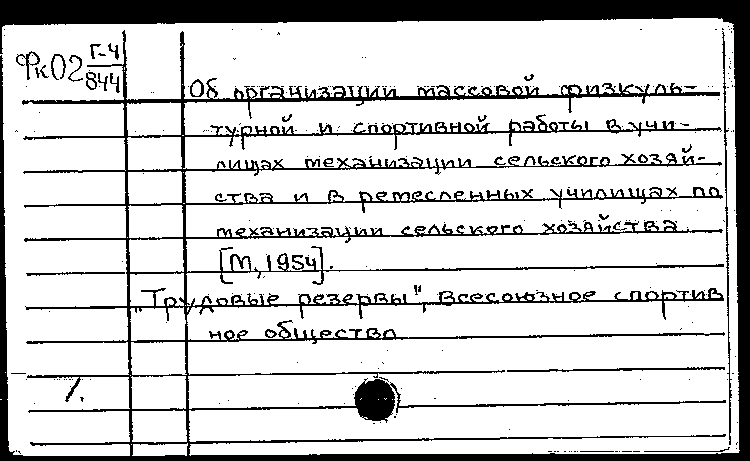 Фк02 Г-4/844
Об организации массовой физкуль-
турной и спортивной работы в учи-
лищах механизации сельского хозяй-
ства и в ремесленных училищах по
механизации сельского хозяйства
[М, 1954].
„Трудовые резервы", Всесоюзное спортив
ное общество
1.